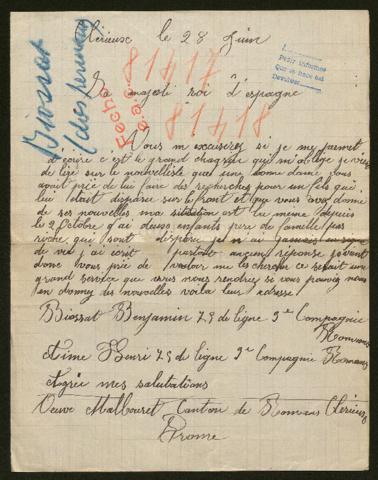 Clérieux le 28 Juin
Petit informes
Que se hace del
Devolver
Biossat
(dos hermanos)
81417
Sa majesté roi d'espagne
Fecha
81418
Vous m excuserez si je me permet
d'écrire c'est le grand chagrin qui m'oblige je viens
de lire sur le nouvelliste quel une bonne dame vous
avait priée de lui faire des recherches pour un fils qui
lui était disparu sur le front et que vous avez donné
de ses nouvelles ma situation est la même depuis
le 2 Octobre j'ai deux enfants père de famille pas
riche qui sont disparu je n ai jamais eu signe
de vie j ai écrit partout aucune réponse je vient
donc vous prié de vouloir me les chercher ce serait un
grand service que vous nous rendriez si vous pouviez nous
en donner des nouvelles voila leur adresse
Biossat Benjamin 75 de ligne 3e Compagnie
Romans
et Aimé Henri 75 de ligne 9e Compagnie Romans
Agrée mes salutations
Veuve Malbouret Canton de Romans Clérieux
Drome